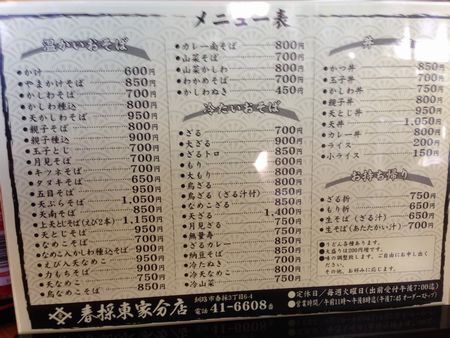 メニュー表
温かいおそば
●かけ 600円
●やまかけそば 850円
●かしわそば 700円
●かしわ種込 800円
●天かしわそば 950円
●親子そば 800円
●親子種込 900円
●玉子とじ 700円
●月見そば 700円
●キツネそば 700円
●タヌキそば 650円
●五目そば 950円
●天ぷらそば 1,050円
●天南そば 850円
●上天とじそば(えび2本) 1,150円
●天とじそば 950円
●なめこそば 700円
●なめこんかしわ種込そば 900円
●えび入天なめこ 950円
●力もちそば 750円
●天なめこ 850円
●鳥なめこそば 850円
●カレー南そば 800円
●山菜そば 700円
●山菜かしわ 800円
●わかめそば 700円
●かしわぬき 450円
冷たいおそば
●ざる 700円
●大ざる 900円
●ざるトロ 850円
●もり 600円
●大もり 800円
●鳥ざる 850円
●鳥ざる(ざる汁付) 900円
●なめこざる 850円
●天ざる 1,400円
●月見ざる 750円
●無量寿 750円
●ざるカレー 850円
●納豆そば 850円
●冷カしわ 850円
●冷天なめこ
●冷山菜
丼
●かつ丼 850円
●玉子丼 700円
●かしわ丼 750円
●親子丼 800円
●天とじ丼 950円
●天丼 1,050円
●カレー丼 800円
●ライス 200円
●小ライス 150円
お持ち帰り
●ざる折 750円
●もり折 650円
●生そば(ざる汁) 650円
●生そば(あたたかい汁) 700円
●うどん各種あります。
●大盛りは200円増です。
その他、お好みに応じます。
春採東家分店
釧路市春採3丁目64
電話 41-6608番
●定休日/毎週火曜日(出前受付午後7:00迄)
●営業時間/午前11時〜午後8時迄(午後7:45オーダーストップ)